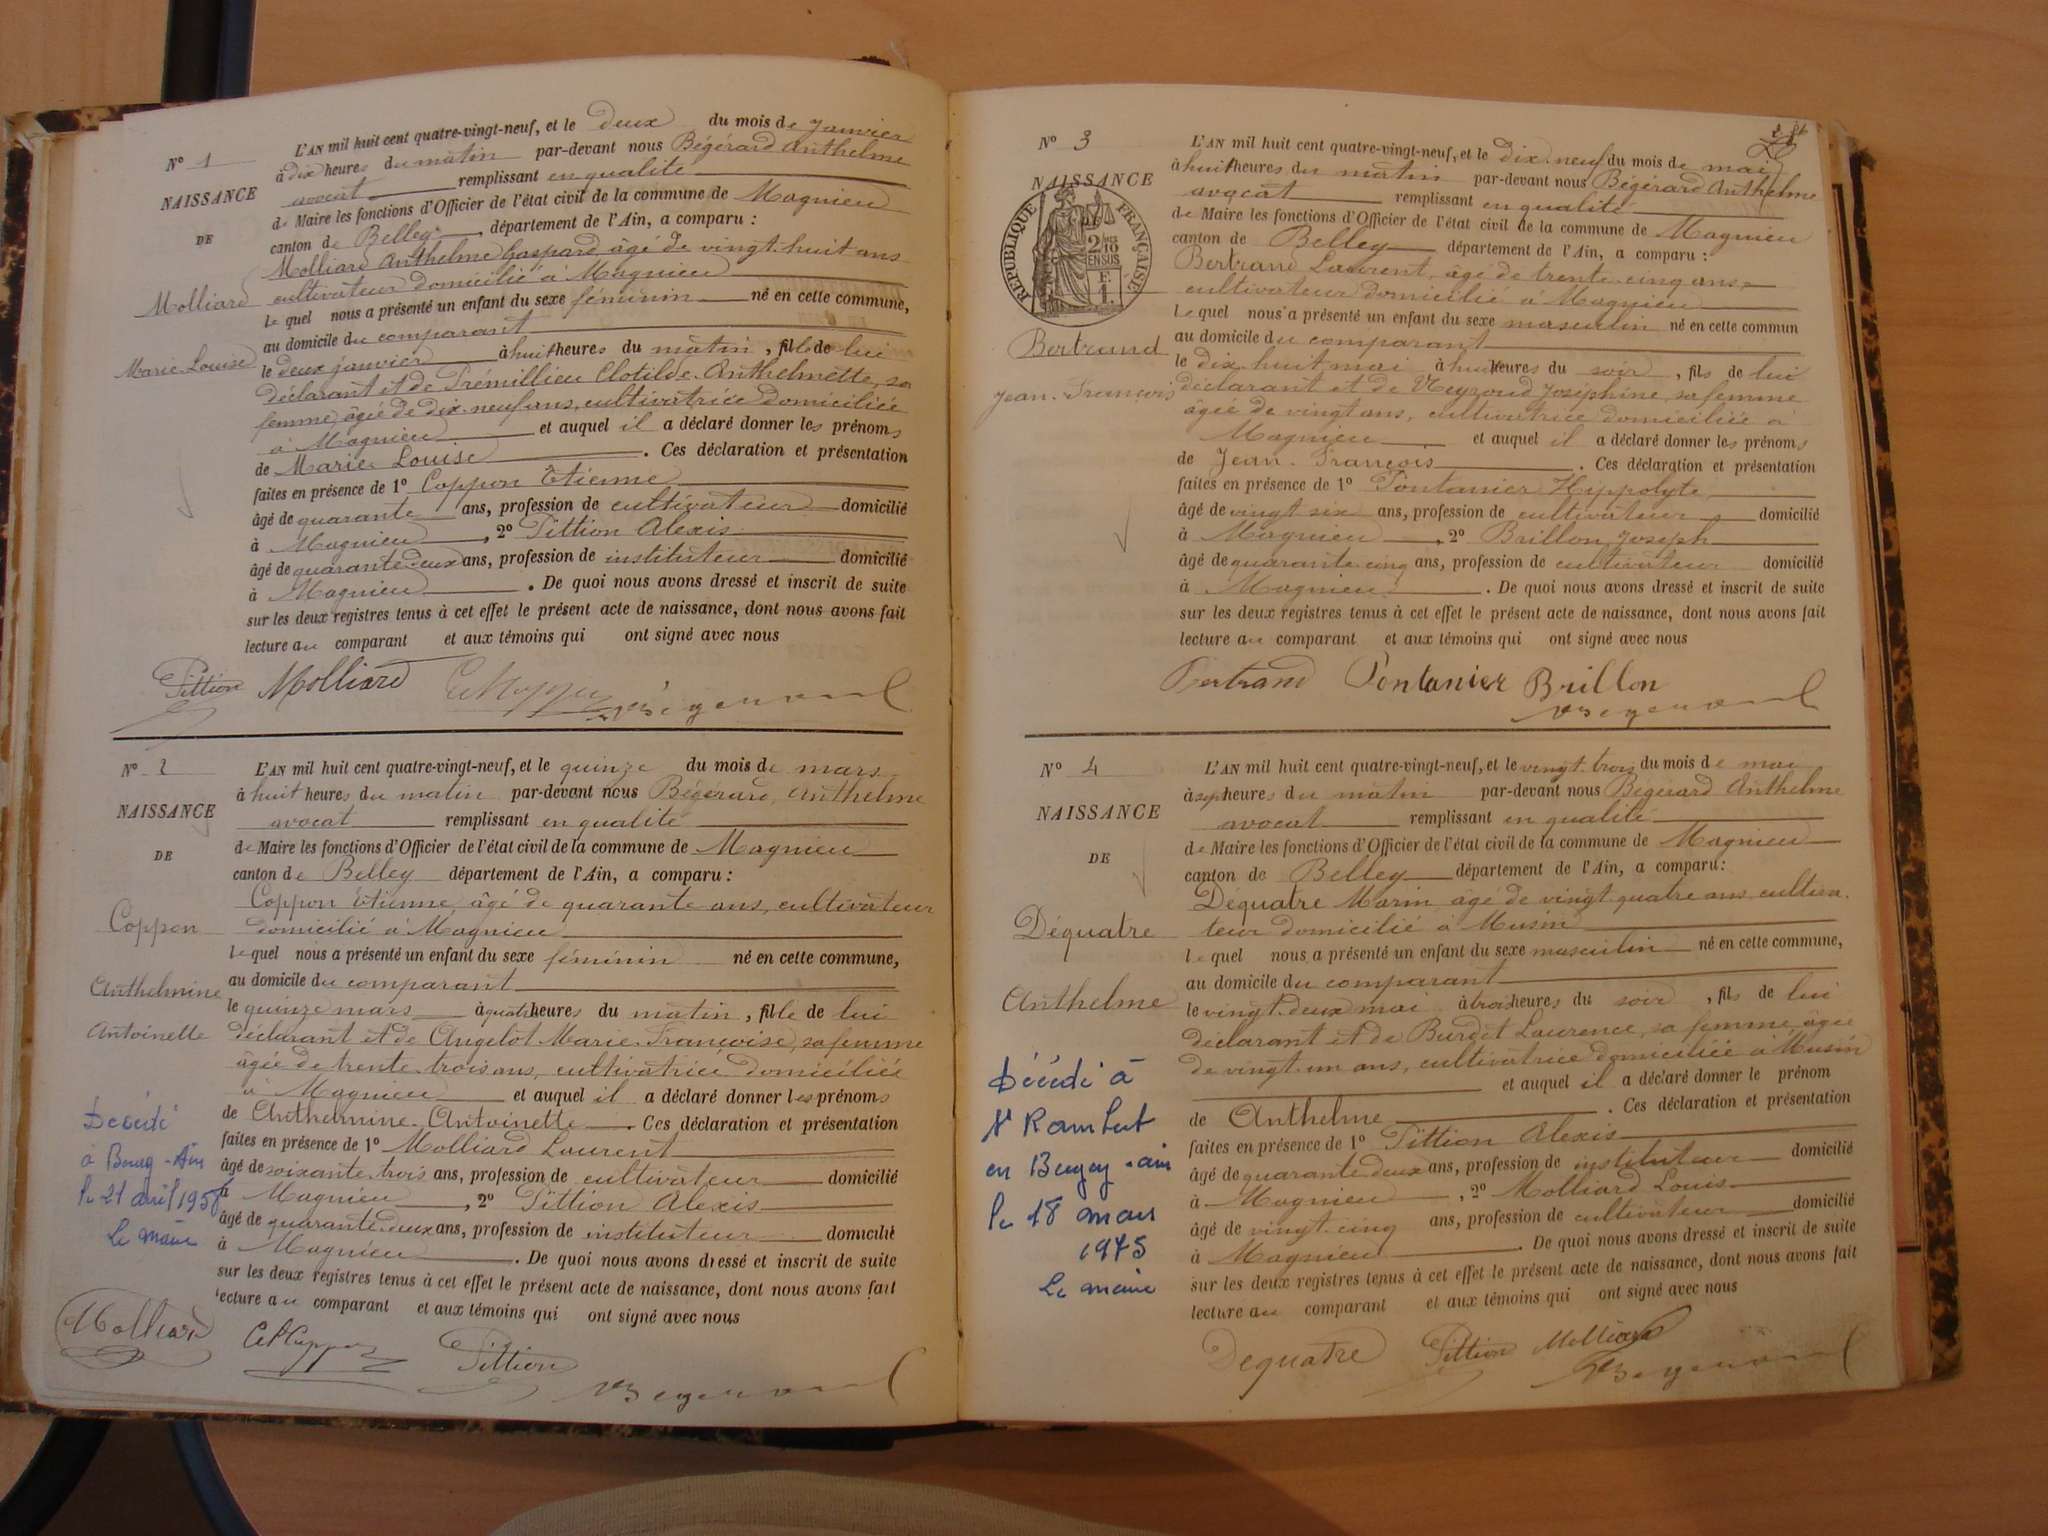 N° 1
NAISSANCE
DE
Molliard
Marie Louise
L'AN mil huit cent quatre-vingt-neuf, et le deux du mois de janvier
à dix heures du matin par-devant nous Bégérard Anthelme
avocat remplissant en qualité
de Maire les fonctions d'Officier de l'état civil de la commune de Magnieu
canton de Belley, département de l'Ain, a comparu :
Molliard Anthelme Gaspard, âgé de vingt-huit ans
cultivateur domicilié à Magnieu
lequel nous a présenté un enfant du sexe féminin né en cette commune,
au domicile du comparant
le deux janvier à huit heures du matin, fille de lui
déclarant et de Prémillieu Clotilde Anthelmette, sa
femme, âgée de dix-neuf ans, cultivatrice domiciliée
à Magnieu et auquel il a déclaré donner les prénoms
de Marie Louise. Ces déclaration et présentation
faites en présence de 1° Coppon Étienne
âgé de quarante ans, profession de cultivateur domicilié
à Magnieu, 2° Pittion Alexis
âgé de quarante-deux ans, profession de instituteur domicilié
à Magnieu. De quoi nous avons dressé et inscrit de suite
sur les deux registres tenus à cet effet le présent acte de naissance, dont nous avons fait
lecture au comparant et aux témoins qui ont signé avec nous
Pittion Molliard
N° 2
NAISSANCE
DE
Coppon
Anthelmine
Antoinette
Décédé
à Bourg-Ain
le 21 avril 1958
Le maire
L'AN mil huit cent quatre-vingt-neuf, et le quinze du mois de mars
à huit heures du matin par-devant nous Bégérard, Anthelme
avocat remplissant en qualité
de Maire les fonctions d'Officier de l'état civil de la commune de Magnieu
canton de Belley département de l'Ain, a comparu :
Coppon Étienne, âgé de quarante ans, cultivateur
domicilié à Magnieu
lequel nous a présenté un enfant du sexe féminin né en cette commune,
au domicile du comparant
le quinze mars à quatre heures du matin, fille de lui
déclarant et de Angelot Marie Françoise, sa femme
âgée de trente-trois ans, cultivatrice domiciliée
à Magnieu et auquel il a déclaré donner les prénoms
de Anthelmine Antoinette. Ces déclaration et présentation
faites en présence de 1° Molliard Laurent
âgé de soixante-trois ans, profession de cultivateur domicilié
à Magnieu, 2° Pittion Alexis
âgé de quarante-deux ans, profession de instituteur domicilié
à Magnieu. De quoi nous avons dressé et inscrit de suite
sur les deux registres tenus à cet effet le présent acte de naissance, dont nous avons fait
lecture au comparant et aux témoins qui ont signé avec nous
Molliard Pittion
N° 3
NAISSANCE
RÉPUBLIQUE FRANÇAISE
2/10 EN SUS
F.
1.
Bertrand
Jean-François
L'AN mil huit cent quatre-vingt-neuf, et le dix-neuf du mois de mai
à huit heures du matin par-devant nous Bégérard Anthelme
avocat remplissant en qualité
de Maire les fonctions d'Officier de l'état civil de la commune de Magnieu
canton de Belley département de l'Ain, a comparu :
Bertrand Laurent, âgé de trente-cinq ans
cultivateur domicilié à Magnieu
lequel nous a présenté un enfant du sexe masculin né en cette commun
au domicile du comparant
le dix-huit mai à huit heures du soir, fils de lui
déclarant et de Neyroud Joséphine, sa femme
âgée de vingt ans, cultivatrice domiciliée à
Magnieu et auquel il a déclaré donner les prénoms
de Jean-François. Ces déclaration et présentation
faites en présence de 1° Fontanier Hippolyte
âgé de vingt six ans, profession de cultivateur domicilié
à Magnieu, 2° Brillon Joseph
âgé de quarante-cinq ans, profession de cultivateur domicilié
à Magnieu. De quoi nous avons dressé et inscrit de suite
sur les deux registres tenus à cet effet le présent acte de naissance, dont nous avons fait
lecture au comparant et aux témoins qui ont signé avec nous
Bertrand Fontanier Brillon
N° 4
NAISSANCE
DE
Déquatre
Anthelme
Décédé à
St Rambert
en Bugey-ain
le 18 mars
1975
Le maire
L'AN mil huit cent quatre-vingt-neuf, et le vingt-trois du mois de mai
à sept heures du matin par-devant nous Bégérard Anthelme
avocat remplissant en qualité
de Maire les fonctions d'Officier de l'état civil de la commune de Magnieu
canton de Belley département de l'Ain, a comparu:
Déquatre Marin, âgé de vingt-quatre ans cultiva-
teur domicilié à Musin
lequel nous a présenté un enfant du sexe masculin né en cette commune,
au domicile du comparant
le vingt-deux mai à trois heures du soir, fils de lui
déclarant et de Burdet Laurence, sa femme âgée
de vingt-un ans, cultivatrice domiciliée à Musin
et auquel il a déclaré donner le prénom
de Anthelme. Ces déclaration et présentation
faites en présence de 1° Pittion Alexis
âgé de quarante-deux ans, profession de instituteur domicilié
à Magnieu, 2° Molliard Louis
âgé de vingt-cinq ans, profession de cultivateur domicilié
à Magnieu. De quoi nous avons dressé et inscrit de suite
sur les deux registres tenus à cet effet le présent acte de naissance, dont nous avons fait
lecture au comparant et aux témoins qui ont signé avec nous
Dequatre Pittion Molliard